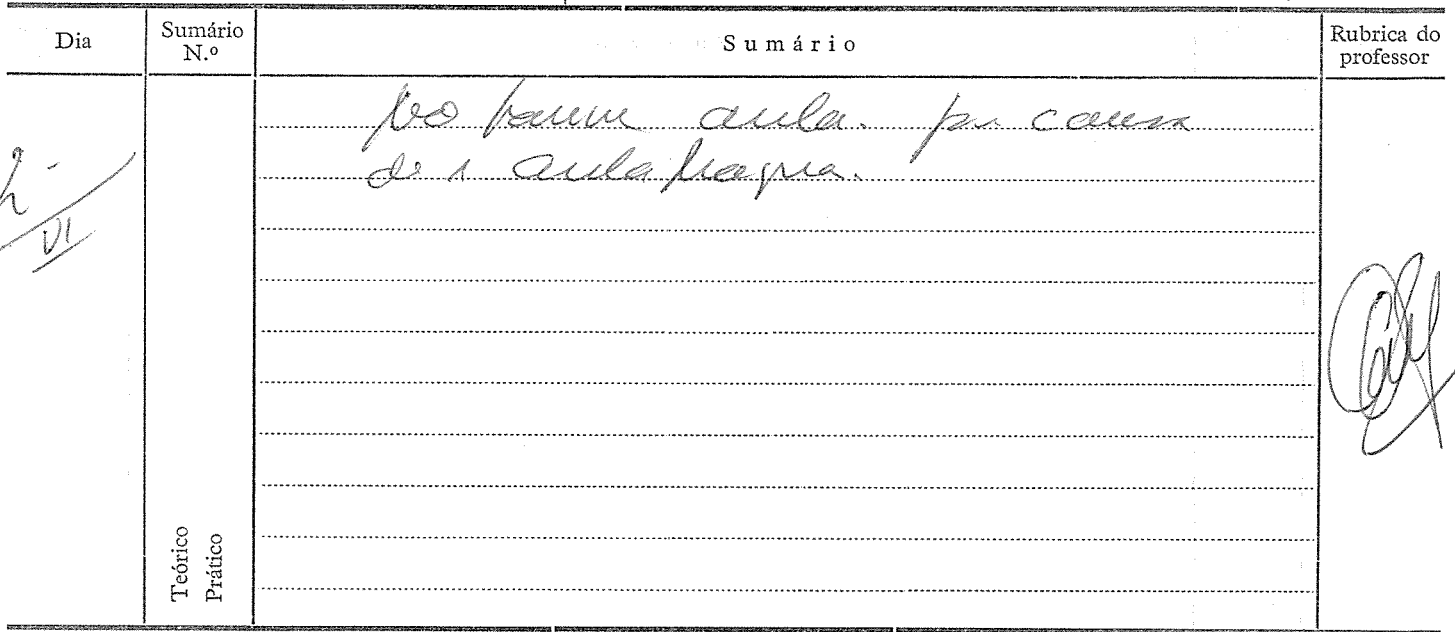 Dia
Sumário
N.º
Sumário
Rubrica do
professor
Não houve aula. por causa
de 1 aula Magna.
2
VI
Teórico
Prático